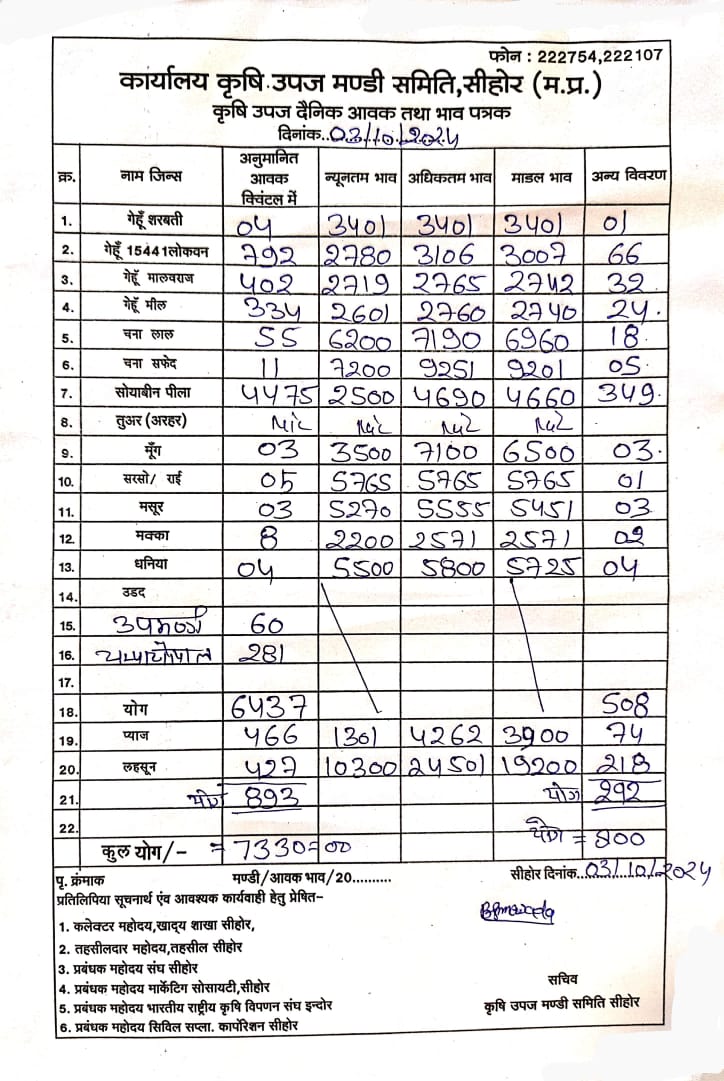 फोन : 222754,222107
कार्यालय कृषि उपज मण्डी समिति,सीहोर (म.प्र.)
कृषि उपज दैनिक आवक तथा भाव पत्रक
दिनांक..03/10/2024
क्र. नाम जिन्स अनुमानित आवक क्विंटल में न्यूनतम भाव अधिकतम भाव माडल भाव अन्य विवरण
1. गेहूँ शरबती 04 3401 3401 3401 01
2. गेहूँ 15441लोकवन 792 2780 3106 3007 66
3. गेहूँ मालवराज 402 2719 2765 2742 32
4. गेहूँ मील 334 2601 2760 2740 24.
5. चना लाल 55 6200 7190 6960 18
6. चना सफेद 11 7200 9251 9201 05
7. सोयाबीन पीला 4475 2500 4690 4660 349
8. तुअर (अरहर)
9. मूँग 03 3500 7100 6500 03.
10. सरसो/ राई 05 5765 5765 5765 01
11. मसूर 03 5270 5555 5451 03
12. मक्का 8 2200 2571 2571 02
13. धनिया 04 5500 5800 5725 04
14. उडद
15. 60
16. 281
17.
18. योग 6437 508
19. प्याज 466 1301 4262 3900 74
20. लहसून 427 10300 24501 19200 218
21. योग 893 योग 292
22. योग = 800
कुल योग/- = 7330=00
पृ. क्रंमाक मण्डी/आवक भाव/20.......... सीहोर दिनांक..03/10/2024
प्रतिलिपिया सूचनार्थ एंव आवश्यक कार्यवाही हेतु प्रेषित–
1. कलेक्टर महोदय,खाद्य शाखा सीहोर,
2. तहसीलदार महोदय,तहसील सीहोर
3. प्रबंधक महोदय संघ सीहोर
4. प्रबंधक महोदय मार्केटिंग सोसायटी,सीहोर
5. प्रबंधक महोदय भारतीय राष्ट्रीय कृषि विपणन संघ इन्दोर
6. प्रबंधक महोदय सिविल सप्ला. कार्पोरेशन सीहोर
सचिव
कृषि उपज मण्डी समिति सीहोर